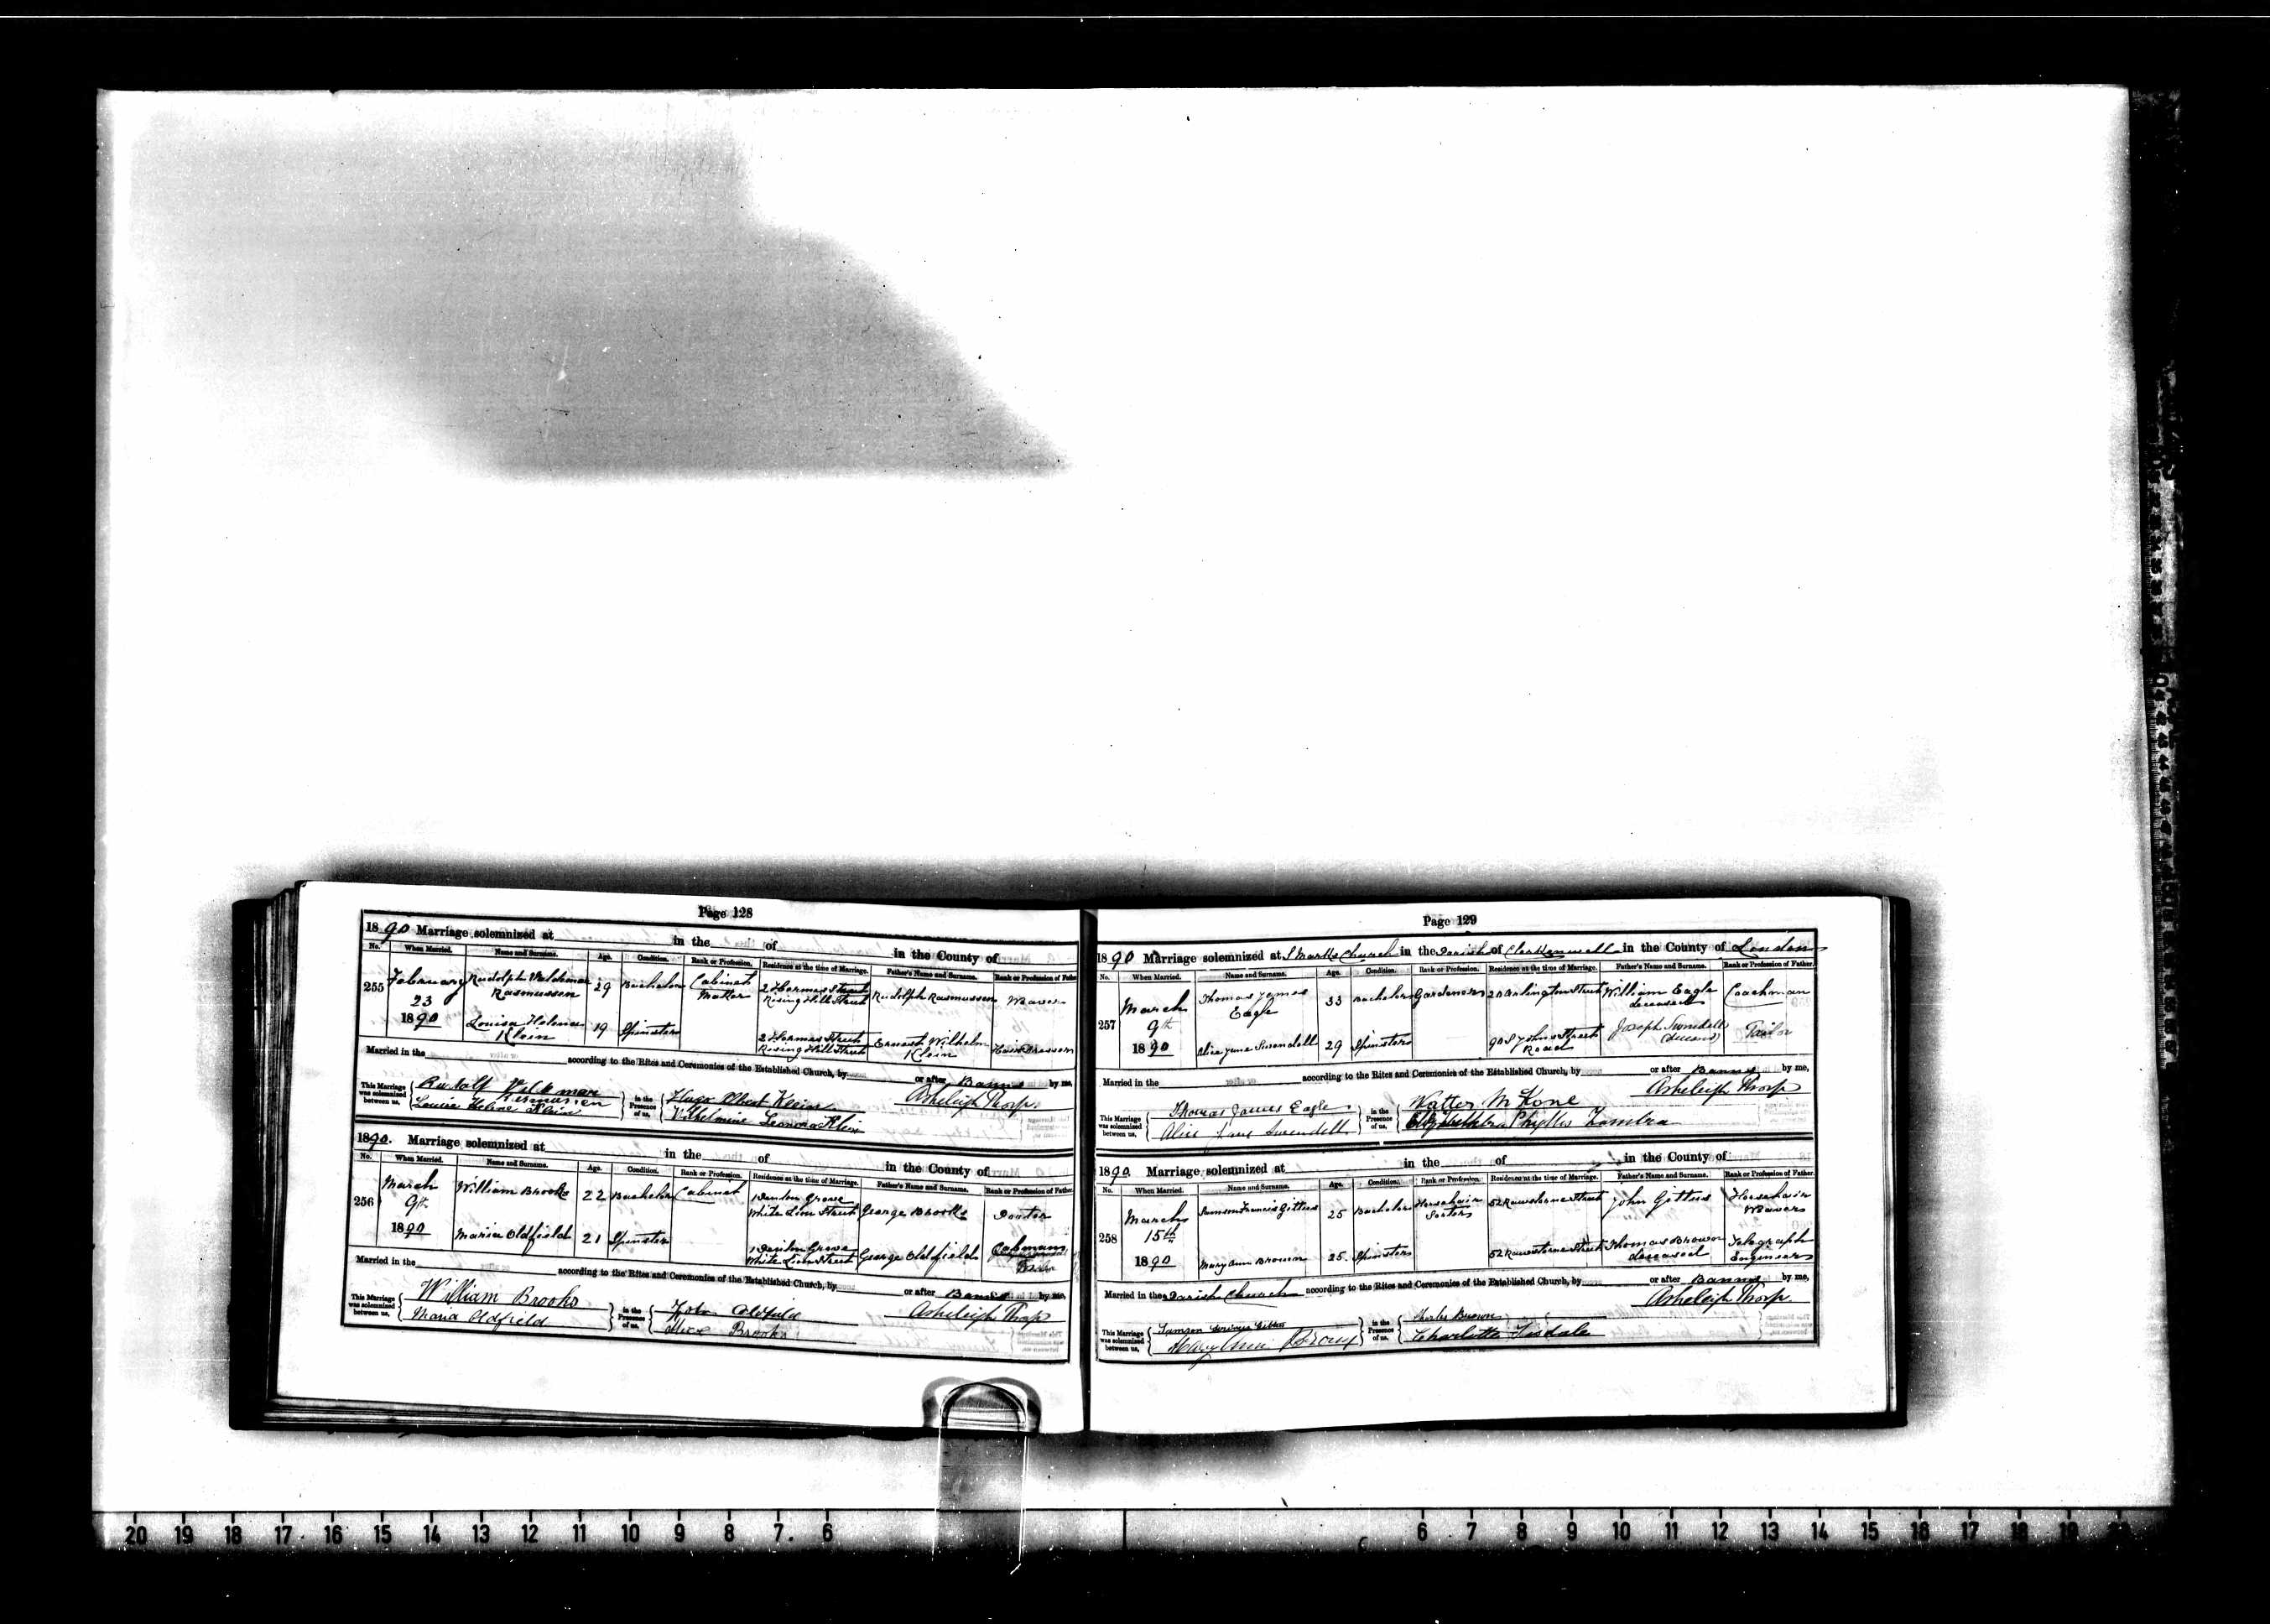 Page 128
1890 Marriage solemnized at in the of in the County of
No. When Married. Name and Surname. Age. Condition. Rank or Profession. Residence at the time of Marriage. Father's Name and Surname. Rank or Profession of Father.
255 February 23 1890 Rudolph Valdemar Rasmussen 29 Bachelor Cabinet Maker 2 Hermes Street Rising Hill Street Rudolph Rasmussen Weaver
Louisa Helena Klein 19 Spinster 2 Hermes Street Rising Hill Street Ernest Wilhelm Klein Hair Dresser
Married in the according to the Rites and Ceremonies of the Established Church, by or after Banns by me,
This Marriage was solemnized between us, Rudolf Valdemar Rasmussen in the Presence of us, Hugo Albert Klein Asheleigh Thorp
Louise Helene Klein Vilhelmine Leonora Klein
1890. Marriage solemnized at in the of in the County of
No. When Married. Name and Surname. Age. Condition. Rank or Profession. Residence at the time of Marriage. Father's Name and Surname. Rank or Profession of Father.
256 March 9th 1890 William Brooks 22 Bachelor Cabinet White Lion Street George Brooks
Maria Oldfield 21 Spinster White Lion Street George Oldfield Cabman
Married in the according to the Rites and Ceremonies of the Established Church, by or after Banns by me,
This Marriage was solemnized between us, William Brooks in the Presence of us, Oldfield Asheleigh Thorp
Maria Oldfield Brooks
Page 129
1890 Marriage solemnized at St Marks Church in the Parish of Clerkenwell in the County of London
No. When Married. Name and Surname. Age. Condition. Rank or Profession. Residence at the time of Marriage. Father's Name and Surname. Rank or Profession of Father.
257 March 9th 1890 Thomas James Eagle 33 Bachelor Gardener 20 Arlington Street William Eagle deceased Coachman
Alice Jane Swindell 29 Spinster 90 St Johns Street Road Joseph Swindell (deceased) Tailor
Married in the according to the Rites and Ceremonies of the Established Church, by or after Banns by me,
This Marriage was solemnized between us, Thomas James Eagle in the Presence of us, Walter M Kone Asheleigh Thorp
Alice Jane Swindell Phyllis Zambra
1890. Marriage solemnized at in the of in the County of
No. When Married. Name and Surname. Age. Condition. Rank or Profession. Residence at the time of Marriage. Father's Name and Surname. Rank or Profession of Father.
258 March 15th 1890 Samson Francis Gittus 25 Bachelor Horsehair Sorter 52 Rawstorne Street John Gittus Horsehair Weaver
Mary Ann Brown 25 Spinster 52 Rawstorne Street Thomas Brown deceased Telegraph Engineer
Married in the Parish Church according to the Rites and Ceremonies of the Established Church, by or after Banns by me,
This Marriage was solemnized between us, Samson Gittus in the Presence of us, Charles Brown Asheleigh Thorp
Mary Ann Brown Charlotte Tisdale
20 19 18 17 16 15 14 13 12 11 10 9 8 7 6 6 7 8 9 10 11 12 13 14 15 16 17 18 19 20